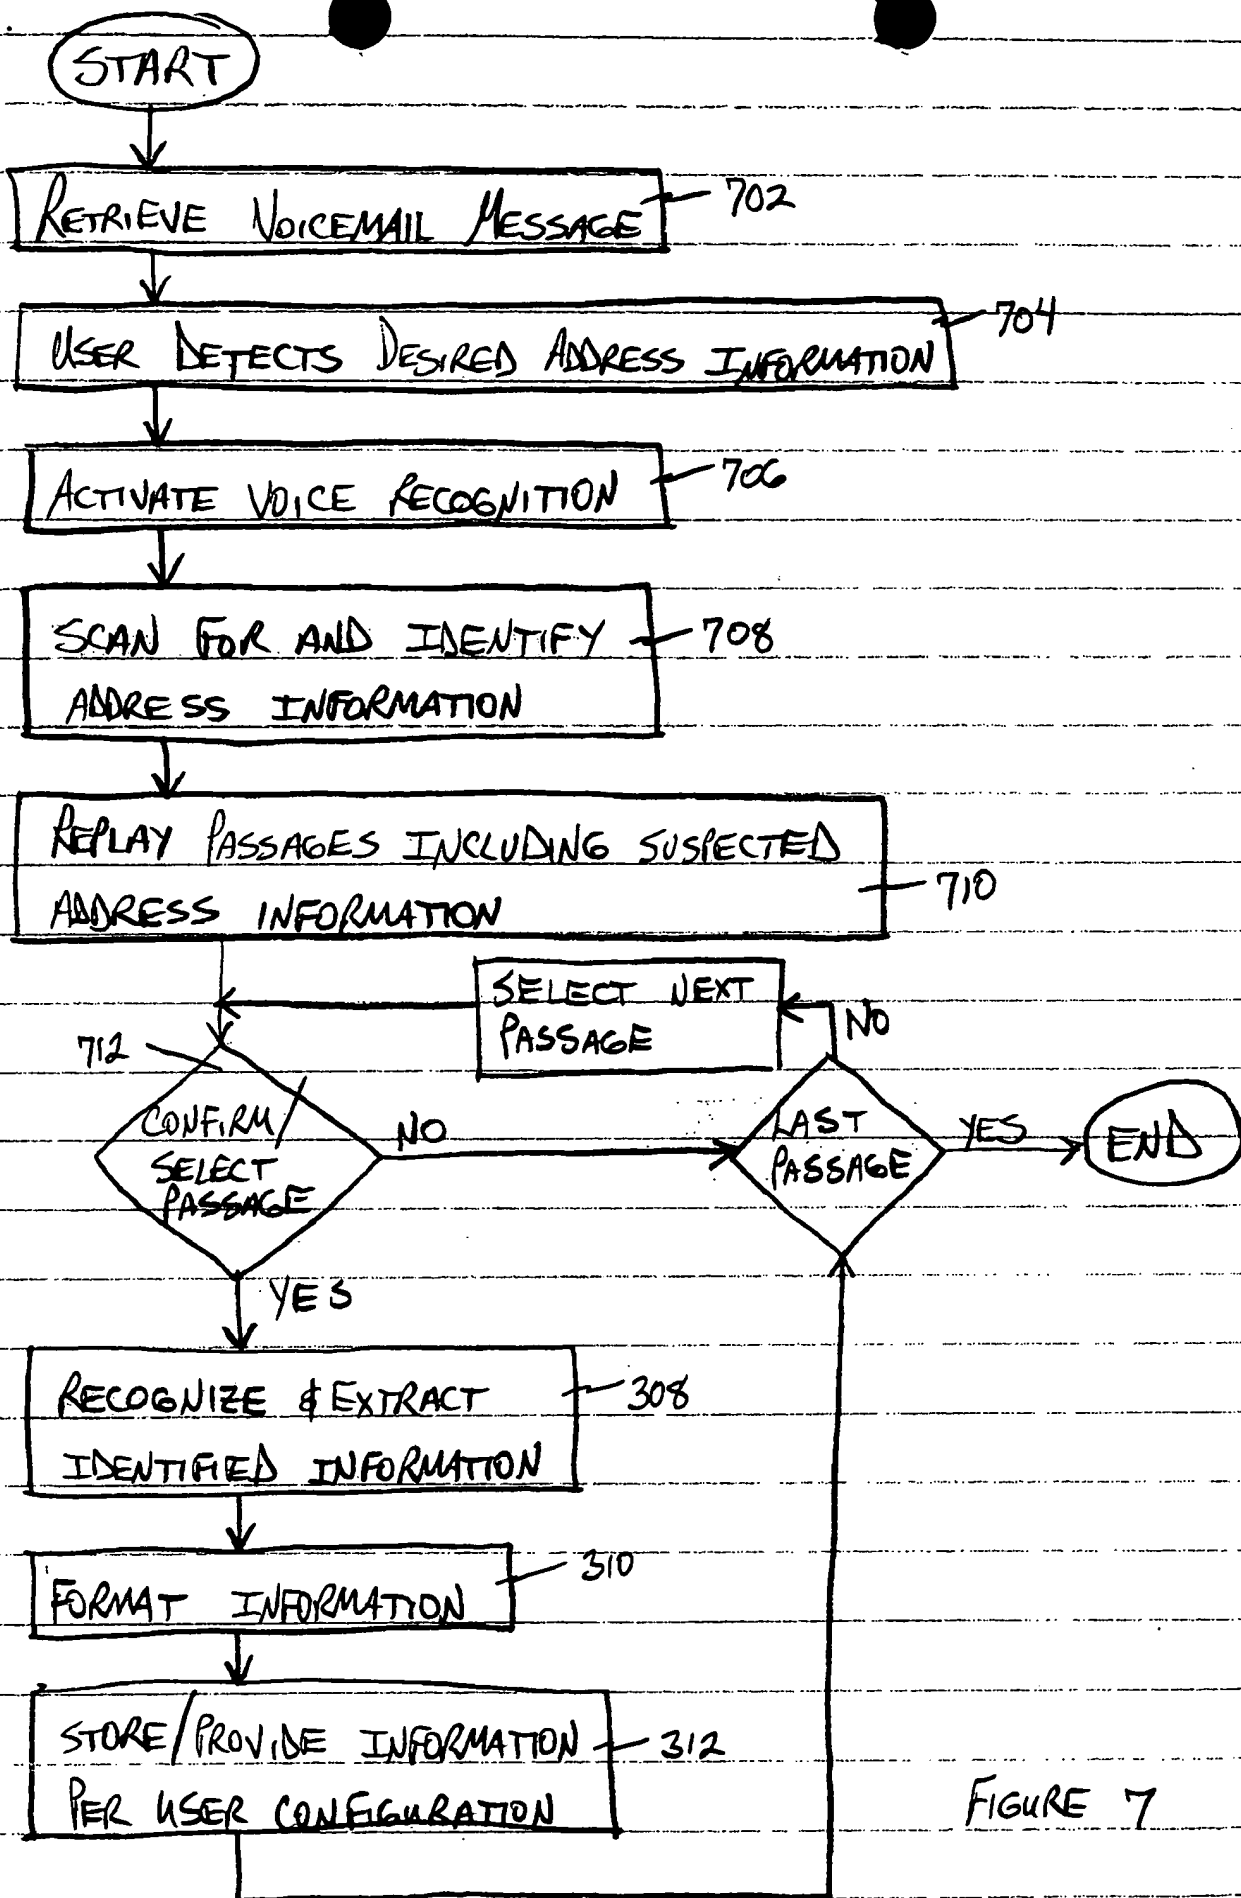 START
RETRIEVE VOICEMAIL MESSAGE
702
USER DETECTS DESIRED ADDRESS INFORMATION
704
ACTIVATE VOICE RECOGNITION
706
SCAN FOR AND IDENTIFY
708
ADDRESS INFORMATION
REPLAY PASSAGES INCLUDING SUSPECTED
ADDRESS INFORMATION
710
SELECT NEXT
PASSAGE
NO
712
CONFIRM/
SELECT
PASSAGE
NO
LAST
PASSAGE
YES
END
YES
RECOGNIZE & EXTRACT
308
IDENTIFIED INFORMATION
FORMAT INFORMATION
310
STORE/PROVIDE INFORMATION
312
PER USER CONFIGURATION
FIGURE 7